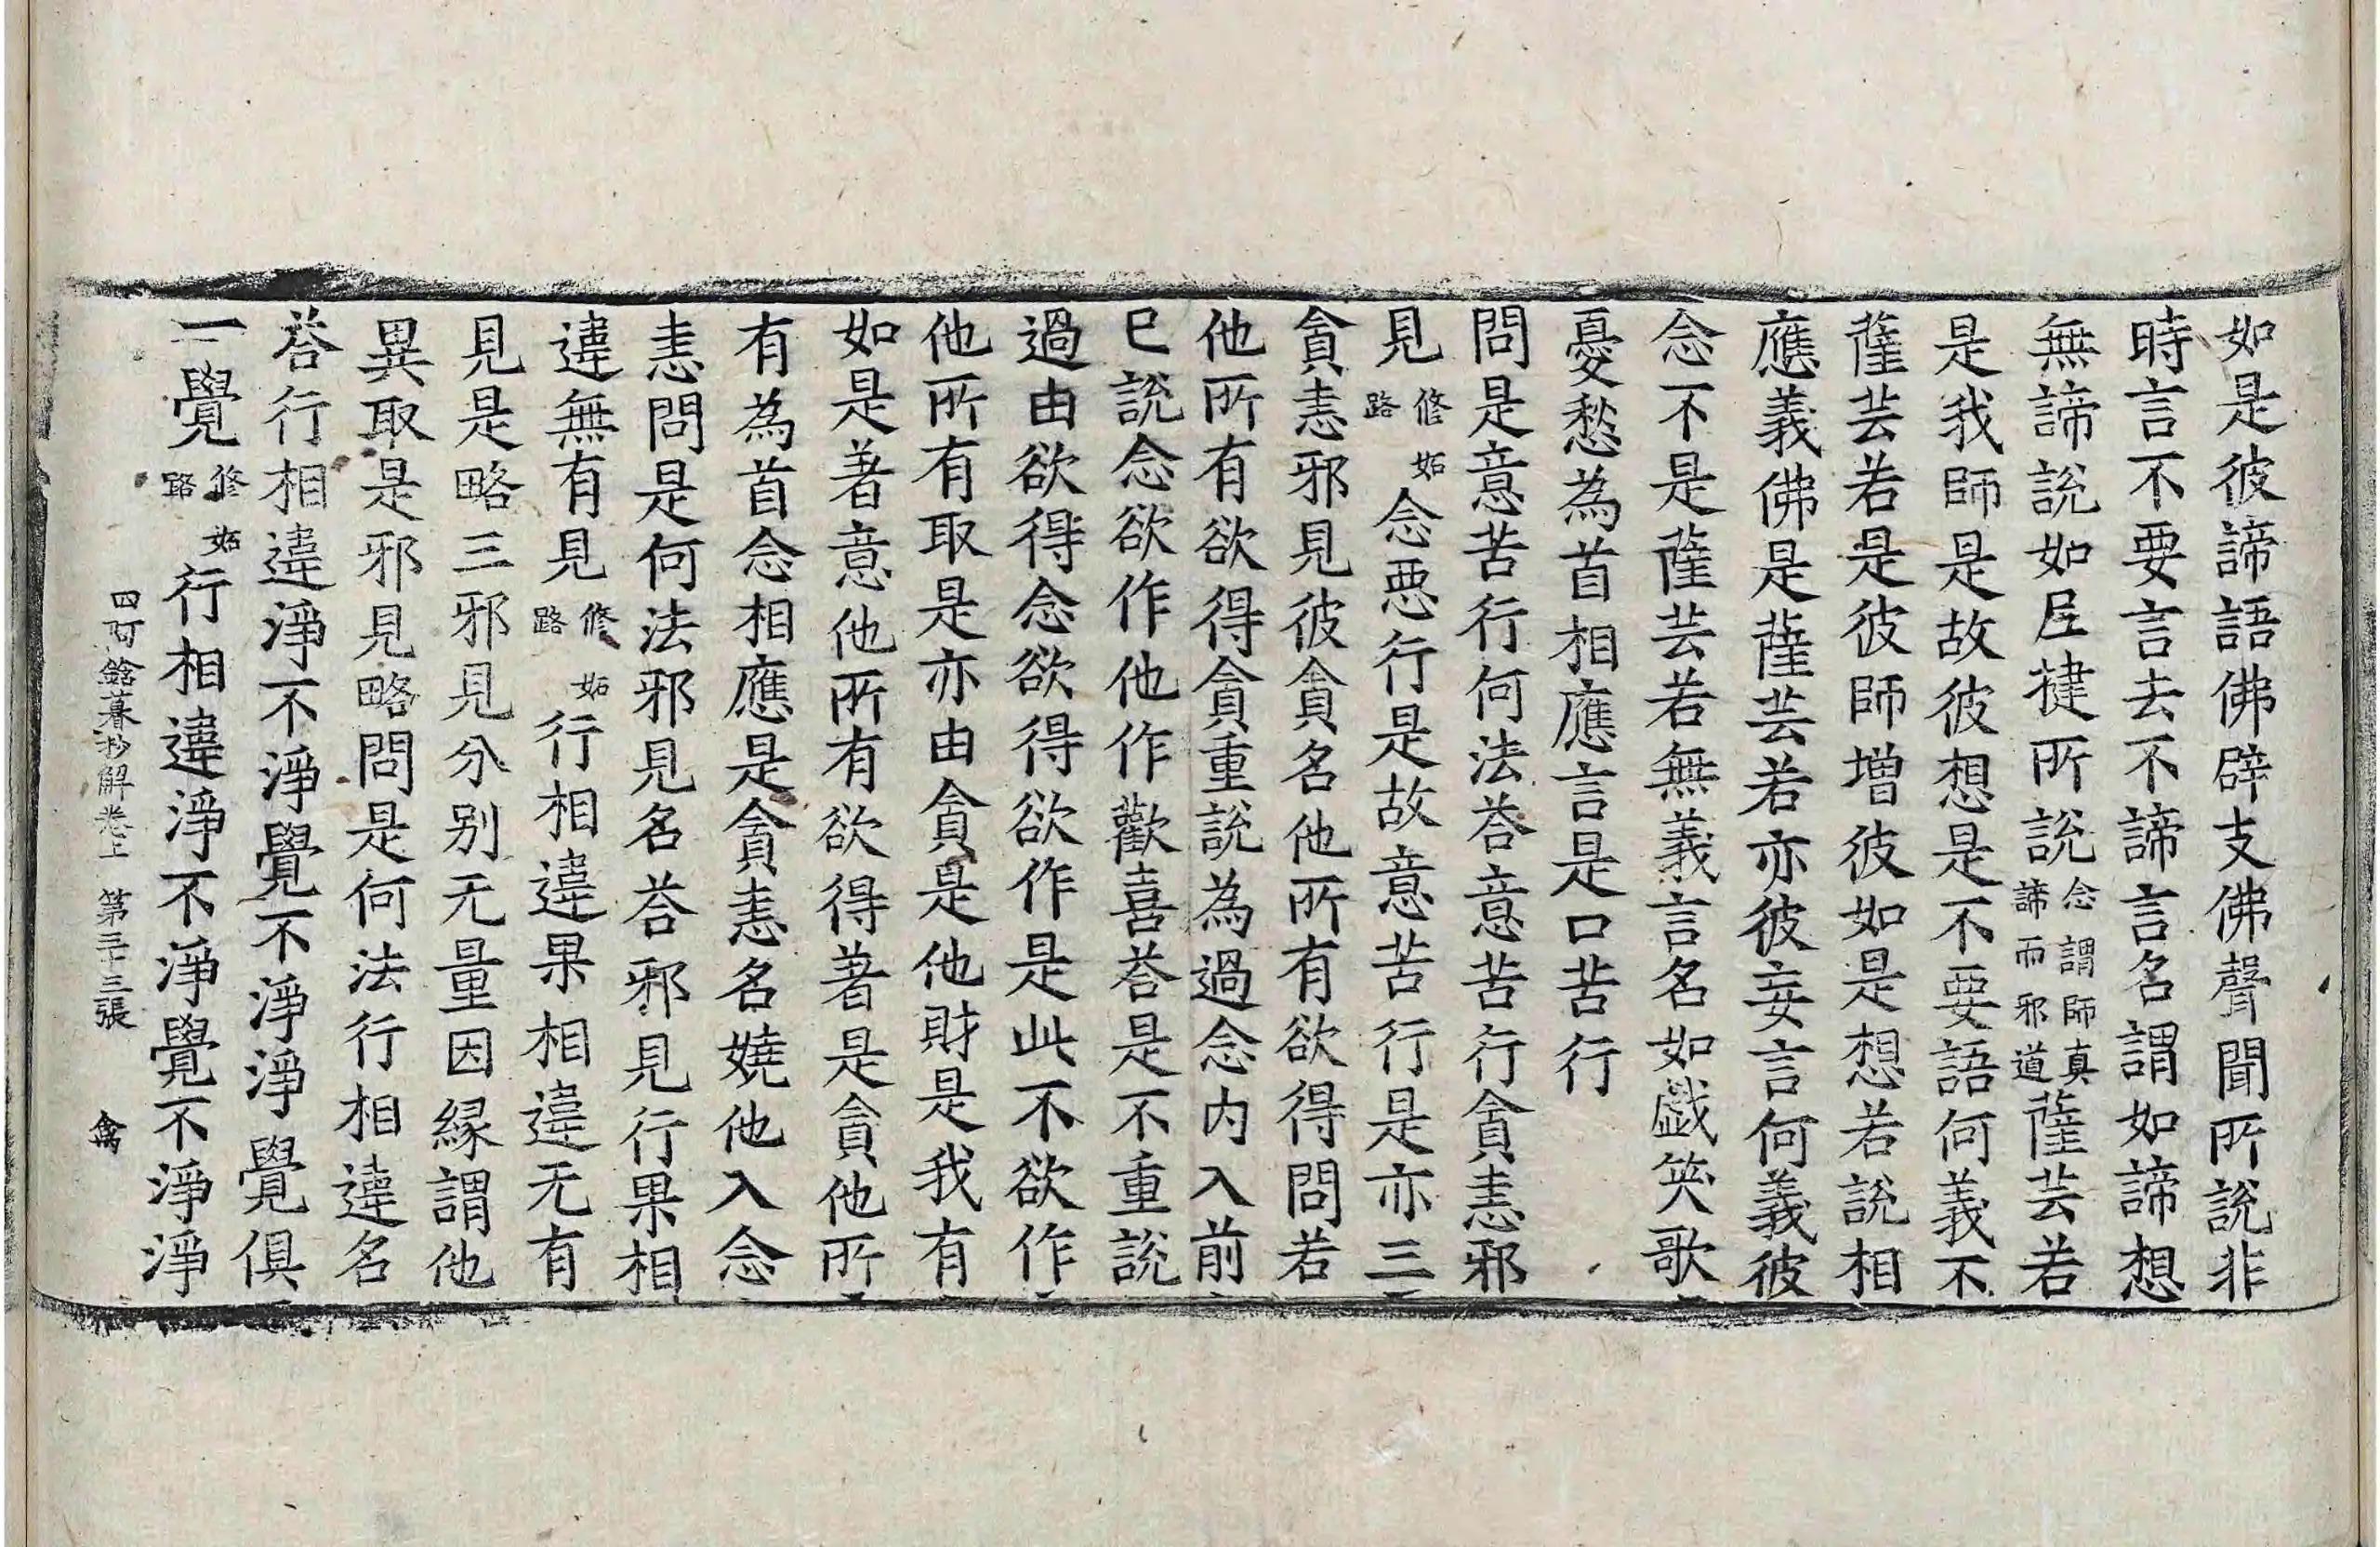 如是彼諦語佛辟支佛聲聞所說非
時言不要言去不諦言名謂如諦想
無諦說如𡰱揵所說念謂師真諦而邪道薩芸若
是我師是故彼想是不要語何義不
薩芸若是彼師增彼如是想若說相
應義佛是薩芸若亦彼妄言何義彼
念不是薩芸若無義言名如戲笑歌
憂愁為首相應言是口苦行
問是意苦行何法荅意苦行貪恚邪
見修妬路念惡行是故意苦行是亦三
貪恚邪見彼貪名他所有欲得問若
他所有欲得貪重說為過念內入前
已說念欲作他作歡喜荅是不重說
過由欲得念欲得欲作是此不欲作
他所有取是亦由貪是他財是我有
如是著意他所有欲得著是貪他所
有為首念相應是貪恚名嬈他入念
恚問是何法邪見名荅邪見行果相
違無有見修妬路行相違果相違无有
見是略三邪見分別无量因緣謂他
異取是邪見略問是何法行相違名
荅行相違淨不淨覺不淨淨覺俱
一覺修妬路行相違淨不淨覺不淨淨
四阿鋡暮抄解卷上　第三十三張　禽